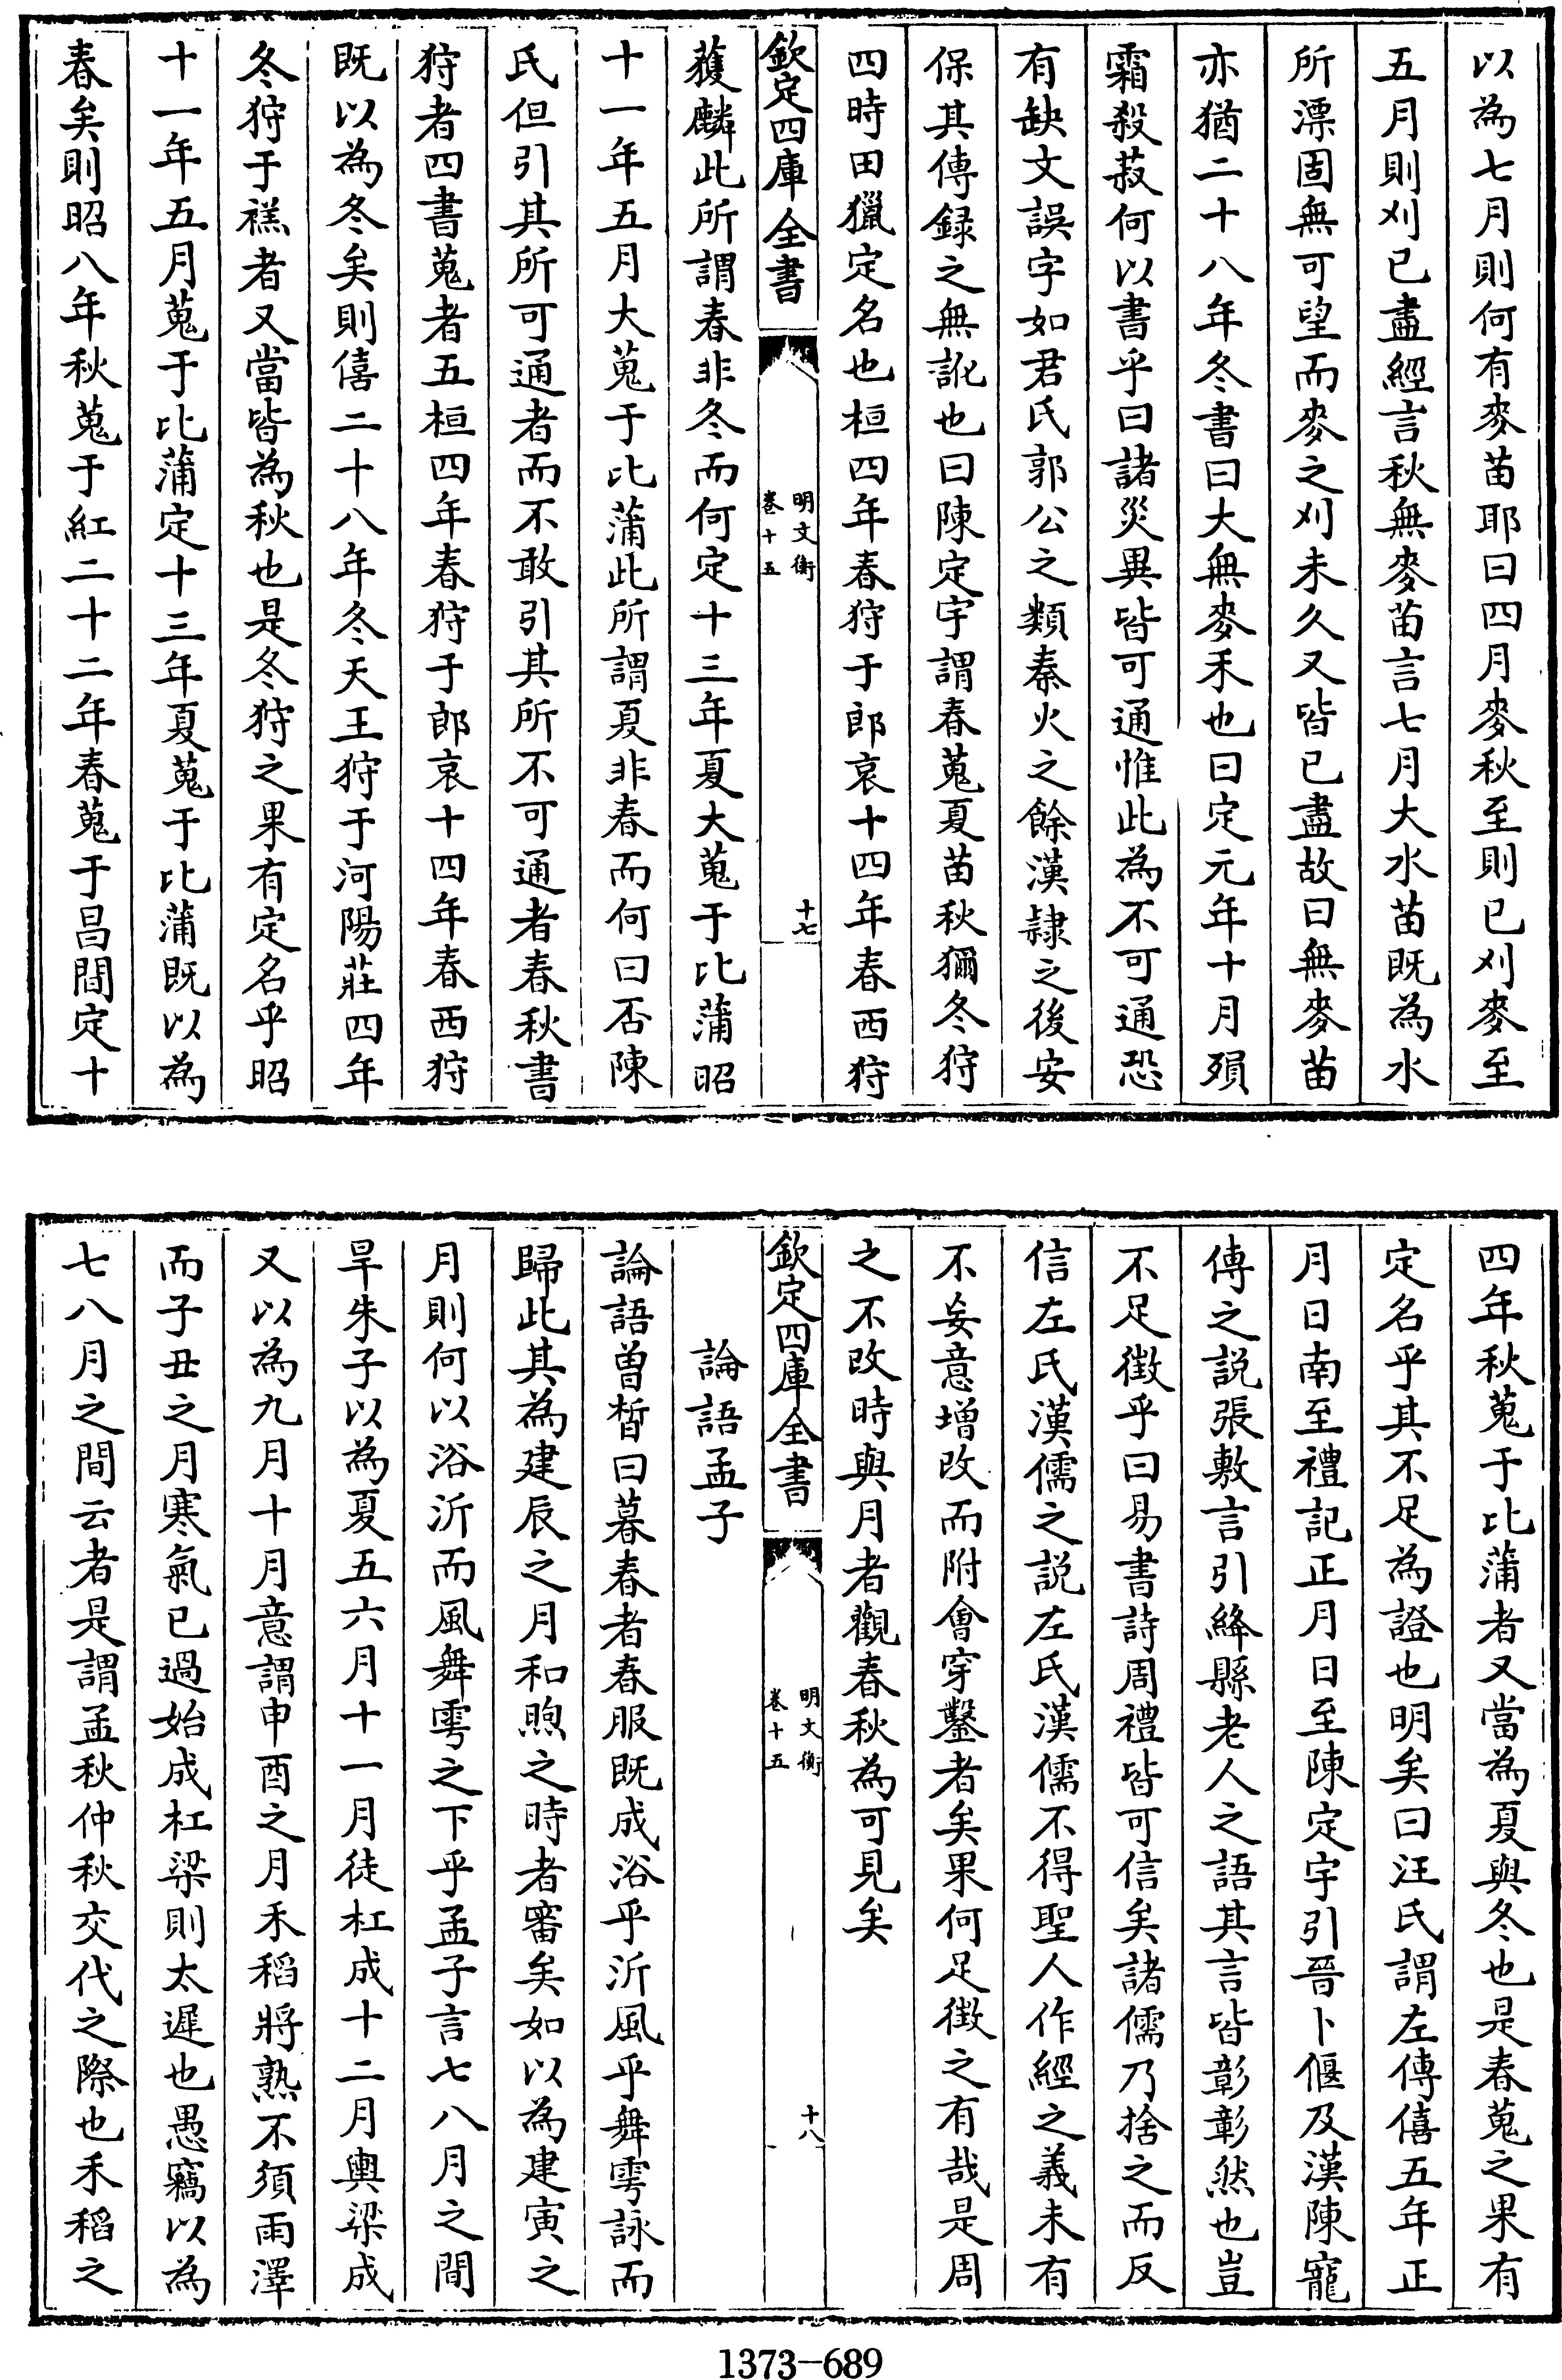 以為七月則何有麥苗耶曰四月麥秋至則已刈麥至
五月則刈已盡經言秋無麥苗言七月大水苗既為水
所漂固無可望而麥之刈未久又皆已盡故曰無麥苗
亦猶二十八年冬書曰大無麥禾也曰定元年十月殞
霜殺菽何以書乎曰諸災異皆可通惟此為不可通恐
有缺文誤字如君氏郭公之類秦火之餘漢隸之後安
保其傳録之無訛也曰陳定宇謂春蒐夏苗秋獮冬狩
四時田獵定名也桓四年春狩于郎哀十四年春西狩
欽定四庫全書
明文衡
卷十五
十七
蒦麟此所謂春非冬而何定十三年夏大蒐于比蒲昭
十一年五月大蒐于比蒲此所謂夏非春而何曰否陳
氏但引其所可通者而不敢引其所不可通者春秋書
狩者四書蒐者五桓四年春狩于郎哀十四年春西狩
既以為冬矣則僖二十八年冬天王狩于河陽莊四年
冬狩于禚者又當皆為秋也是冬狩之果有定名乎昭
十一年五月蒐于比蒲定十三年夏蒐于比蒲既以為
春矣則昭八年秋蒐于紅二十二年春蒐于昌間定十
四年秋蒐于比蒲者又當為夏與冬也是春蒐之果有
定名乎其不足為證也明矣曰汪氏謂左傳僖五年正
月日南至禮記正月日至陳定宇引晉卜偃及漢陳寵
傳之説張敷言引絳縣老人之語其言皆彰彰然也豈
不足徴乎曰易書詩周禮皆可信矣諸儒乃捨之而反
信左氏漢儒之説左氏漢儒不得聖人作經之義未有
不妄意增改而附會穿鑿者矣果何足徴之有哉是周
之不改時與月者觀春秋為可見矣
欽定四庫全書
明文衡
卷十五
十八
論語孟子
論語曽晳曰暮春者春服既成浴乎沂風乎舞雩詠而
歸此其為建辰之月和煦之時者審矣如以為建寅之
月則何以浴沂而風舞雩之下乎孟子言七八月之間
旱朱子以為夏五六月十一月徒杠成十二月輿梁成
又以為九月十月意謂申酉之月禾稻將熟不須雨澤
而子丑之月寒氣已過始成杠梁則太遲也愚竊以為
七八月之間云者是謂孟秋仲秋交代之際也禾稻之
1373-689